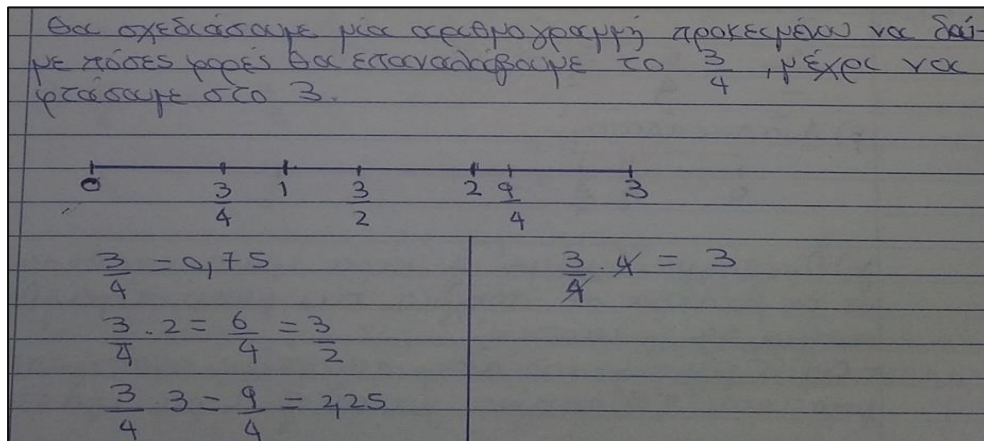 Θα σχεδιάσουμε μία αριθμογραμμή προκειμένου να δού-
με πόσες φορές θα επαναλάβουμε το 3/4, μέχρι να
φτάσουμε στο 3.
0 3/4 1 3/2 2 9/4 3
3/4 = 0,75
3/4 · 2 = 6/4 = 3/2
3/4 · 3 = 9/4 = 2,25
3/4 · 4 = 3